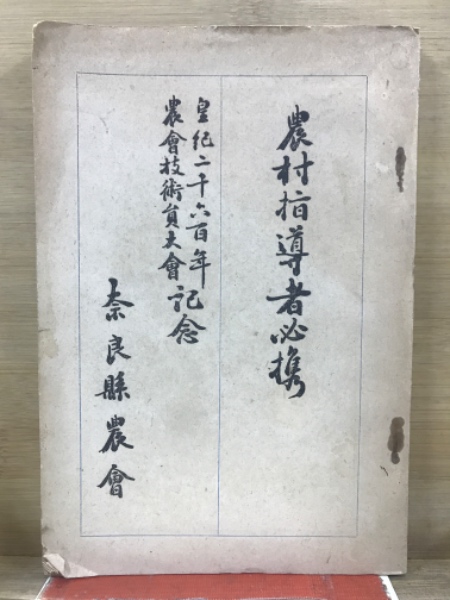 農村指導者必携
皇紀二千六百年
農會技術員大會
記念
奈良縣農會